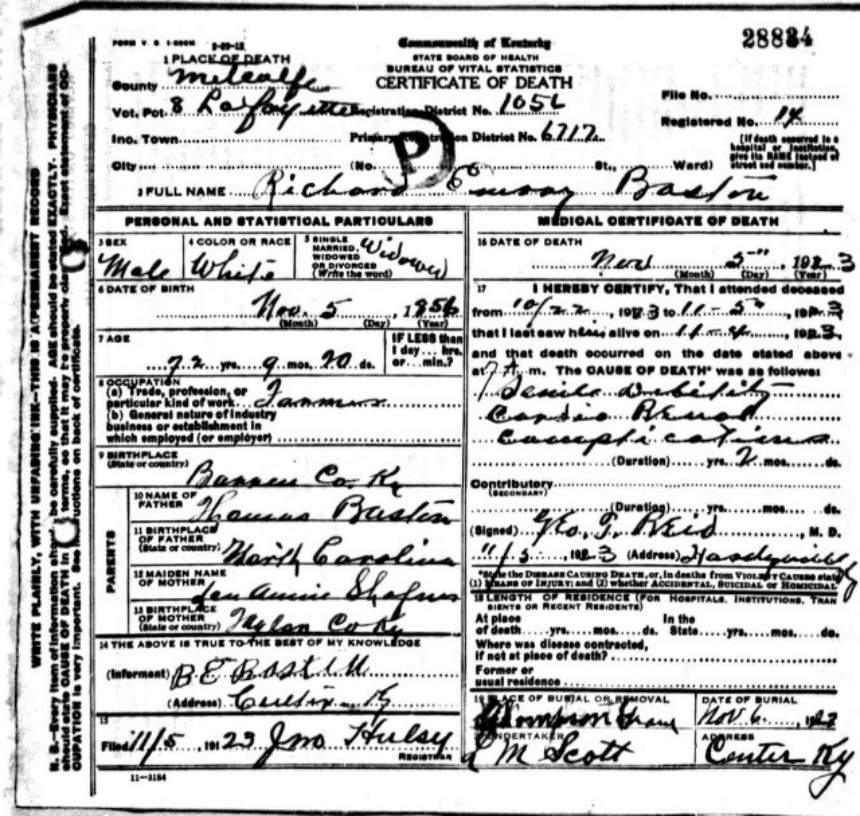 28884
FORM V. S. 1-500M 5-29-12
Commonwealth of Kentucky
STATE BOARD OF HEALTH
BUREAU OF VITAL STATISTICS
CERTIFICATE OF DEATH
1 PLACE OF DEATH
County Metcalfe
Vot. Pct 8 Lafayette Registration District No. 1056
Inc. Town Primary Registration District No. 6717
City (No. St., Ward)
File No.
Registered No. 14
[If death occurred in a hospital or institution, give its NAME instead of street and number.]
P
2 FULL NAME Richard Emray Baston
PERSONAL AND STATISTICAL PARTICULARS
3 SEX Male
4 COLOR OR RACE White
5 SINGLE MARRIED, WIDOWED OR DIVORCED (Write the word) Widowed
6 DATE OF BIRTH
Nov. 5, 1856
(Month) (Day) (Year)
7 AGE
72 yrs. 9 mos. 20 ds.
IF LESS than 1 day... hrs. or... min.?
8 OCCUPATION
(a) Trade, profession, or
particular kind of work Farmer
(b) General nature of industry
business or establishment in
which employed (or employer)
9 BIRTHPLACE
(State or country)
Barren Co. Ky
PARENTS
10 NAME OF FATHER Thomas Baston
11 BIRTHPLACE OF FATHER (State or country) North Carolina
12 MAIDEN NAME OF MOTHER
13 BIRTHPLACE OF MOTHER (State or country) Taylor Co Ky
14 THE ABOVE IS TRUE TO THE BEST OF MY KNOWLEDGE
(Informant) B E BASTON
(Address)
15
Filed 11/5, 1923 Jno Hulsy
REGISTRAR
11-3184
MEDICAL CERTIFICATE OF DEATH
16 DATE OF DEATH
Nov 5", 1923
(Month) (Day) (Year)
17 I HEREBY CERTIFY, That I attended deceased
from 10/22, 1923 to 11-5", 1923
that I last saw him alive on 11-4, 1923,
and that death occurred on the date stated above
at 7 A. m. The CAUSE OF DEATH* was as follows:
Senile Debility
Cardio Renal
Complications
(Duration) yrs. 2 mos. ds.
Contributory
(SECONDARY)
(Duration) yrs. mos. ds.
(Signed) Geo. T. Reid, M. D.
11/5, 1923 (Address) Hardyville Ky
*State the DISEASE CAUSING DEATH, or, in deaths from VIOLENT CAUSES state
(1) MEANS OF INJURY; and (2) whether ACCIDENTAL, SUICIDAL or HOMICIDAL
18 LENGTH OF RESIDENCE (FOR HOSPITALS, INSTITUTIONS, TRAN
SIENTS OR RECENT RESIDENTS)
At place of death yrs. mos. ds. In the State yrs. mos. ds.
Where was disease contracted,
if not at place of death?
Former or
usual residence
19 PLACE OF BURIAL OR REMOVAL Thompson Grave
DATE OF BURIAL Nov. 6, 1923
UNDERTAKER L M Scott
ADDRESS Center Ky
WRITE PLAINLY, WITH UNFADING INK—THIS IS A PERMANENT RECORD
N. B.—Every item of information should be carefully supplied. AGE should be stated EXACTLY. PHYSICIANS
should state CAUSE OF DEATH in terms, so that it may be properly classified. Exact statement of OC-
CUPATION is very important. See instructions on back of certificate.